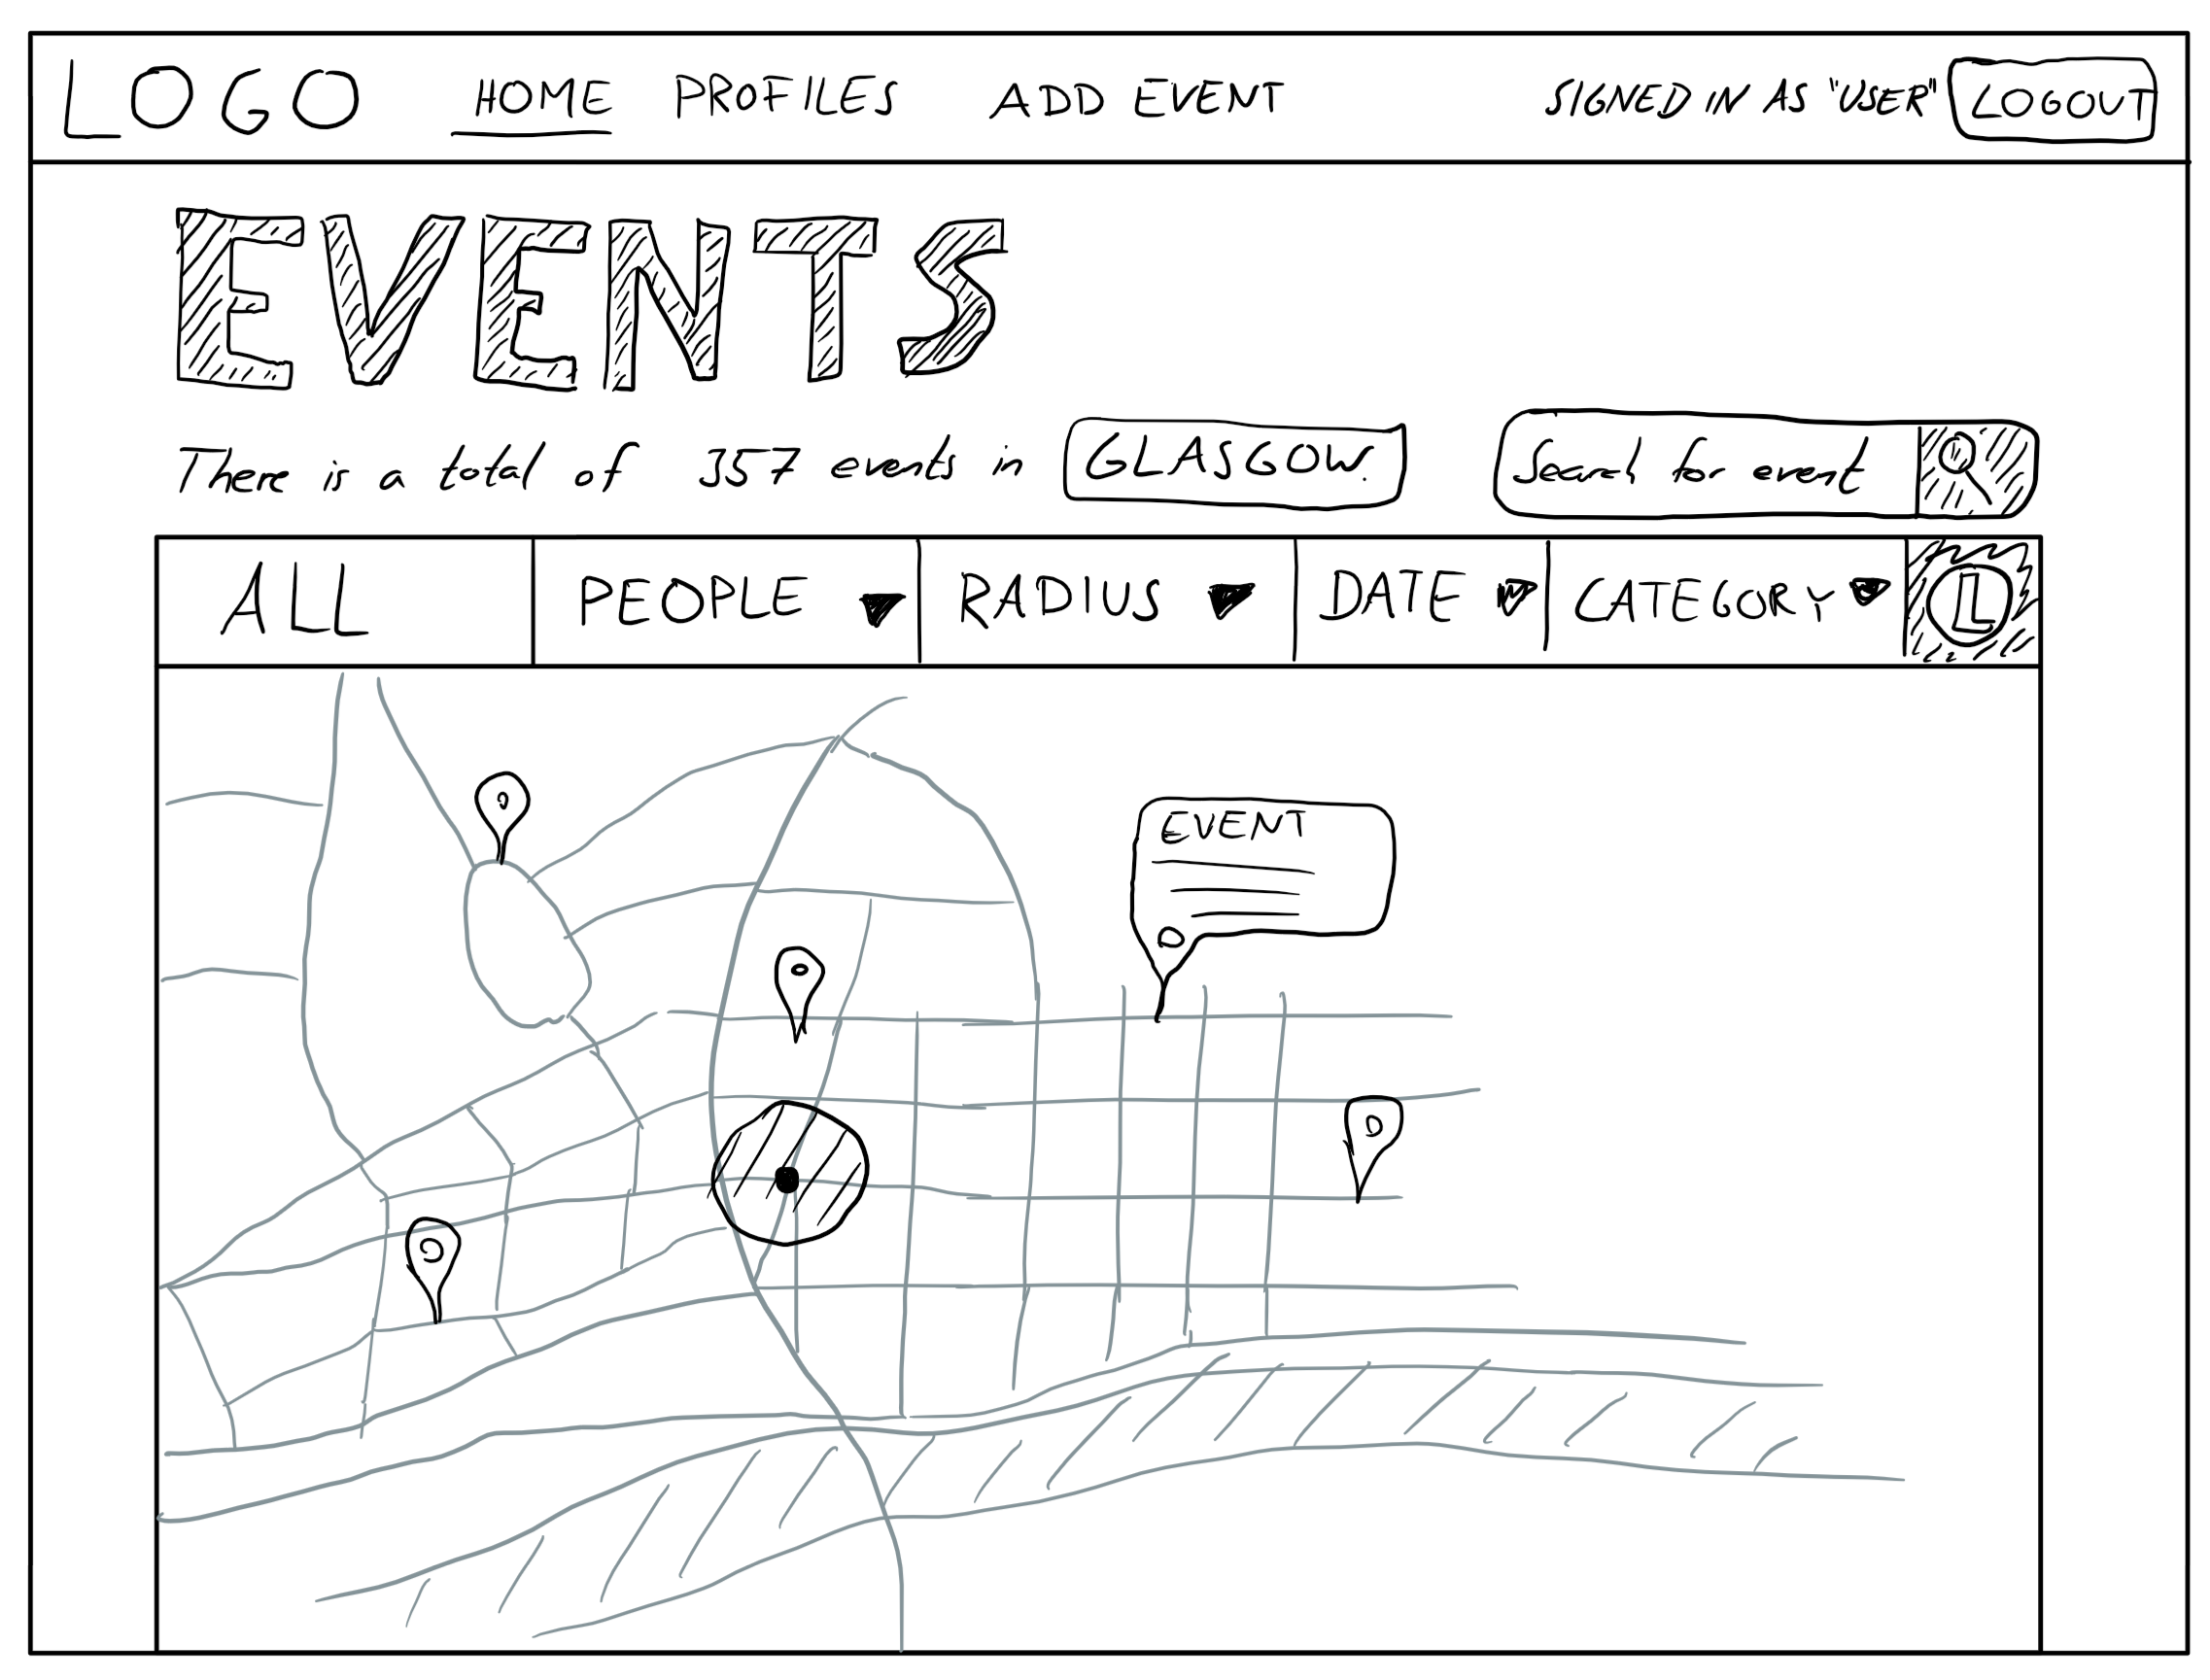 LOGO HOME PROFILES ADD EVENT SIGNED IN AS "USER" LOGOUT
EVENTS
There is a total of 557 events in GLASGOW. Search for event
ALL PEOPLE RADIUS DATE CATEGORY L
EVENT